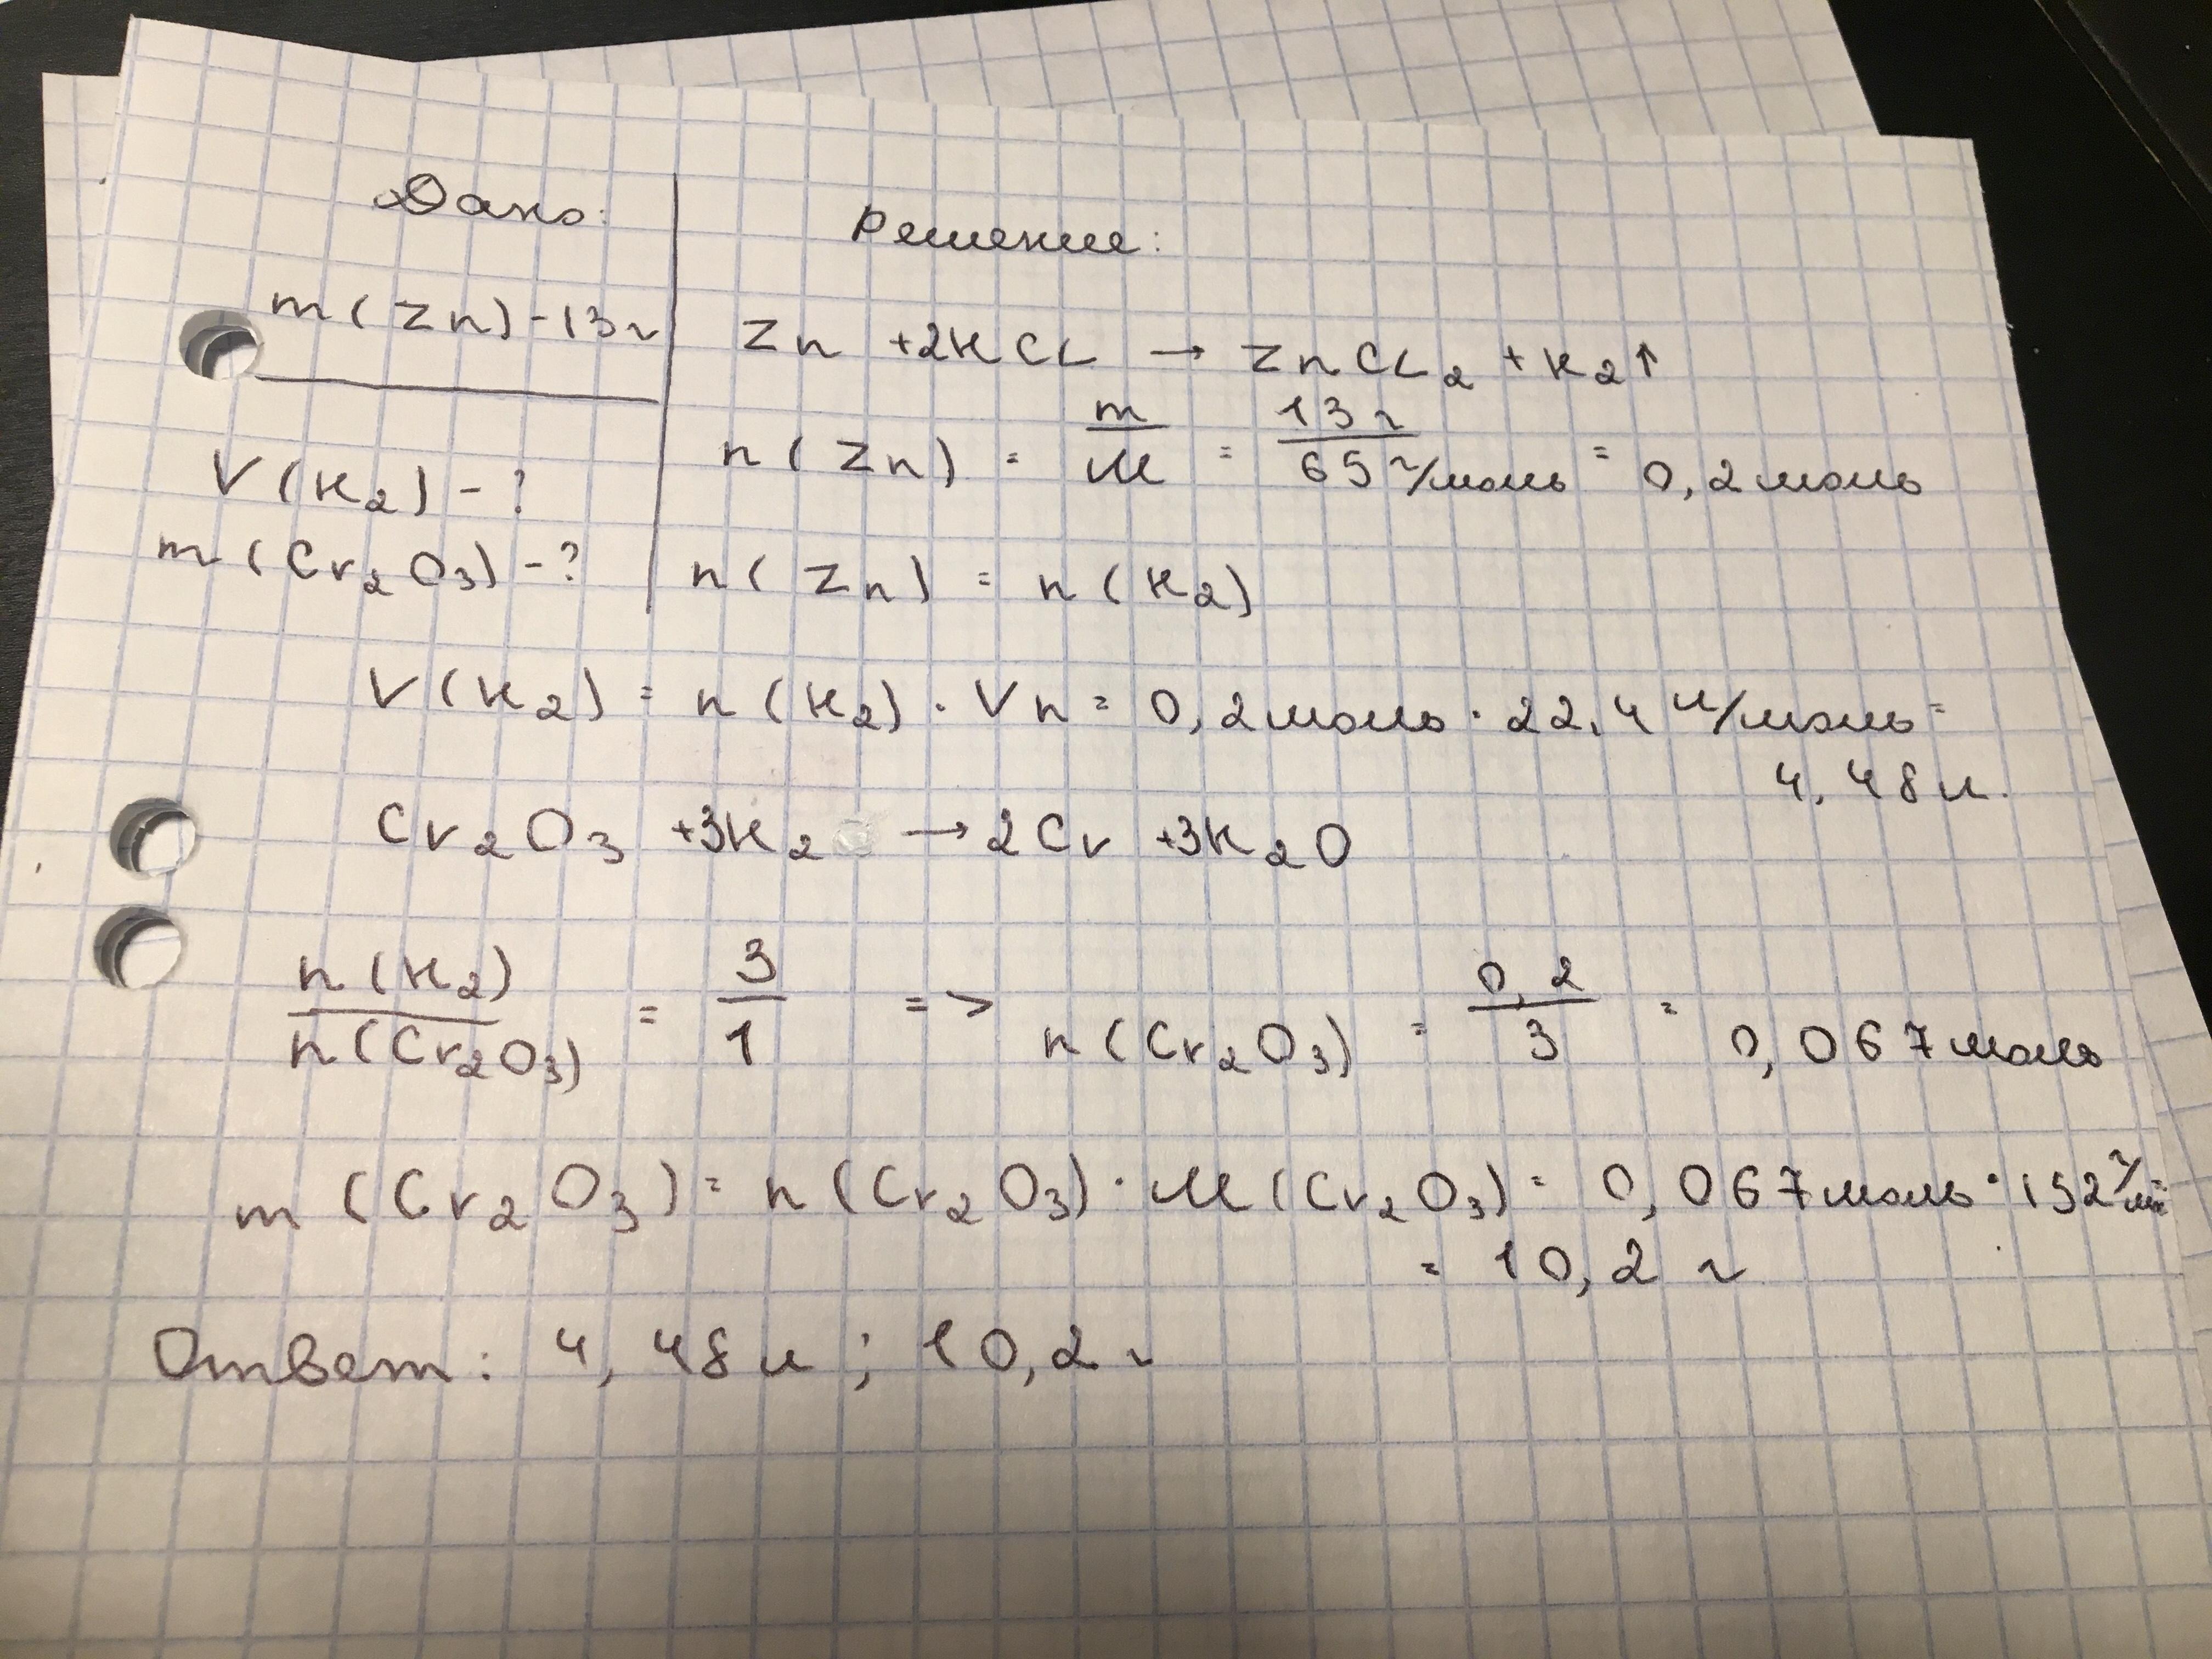 Дано:
Решение:
m(Zn)-13г
Zn +2HCl → ZnCl₂ + H₂↑
n(Zn) = m/M = 13г/65г/моль = 0,2моль
V(H₂)-?
m(Cr₂O₃)-?
n(Zn) = n(H₂)
V(H₂) = n(H₂)·Vn = 0,2моль·22,4л/моль=
4,48л.
Cr₂O₃ +3H₂ → 2Cr +3H₂O
n(H₂)/n(Cr₂O₃) = 3/1 => n(Cr₂O₃) = 0,2/3 = 0,067моль
m(Cr₂O₃) = n(Cr₂O₃)·M(Cr₂O₃) = 0,067моль·152г/м=
= 10,2 г
Ответ: 4,48л; 10,2г